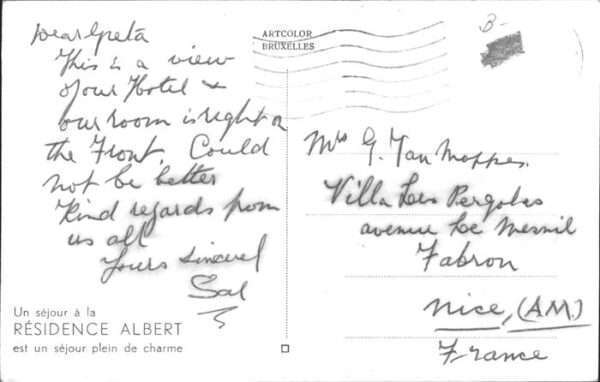 Dear Greta
This is a view
of our Hotel &
our room is right on
the Front. Could
not be better
Kind regards from
us all
Yours Sincerel
Sal
Un séjour à la
RÉSIDENCE ALBERT
est un séjour plein de charme
ARTCOLOR
BRUXELLES
B-
Mrs G. Van Moppes.
Villa Les Pergolas
avenue Le Mesnil
Fabron
Nice, (A.M.)
France